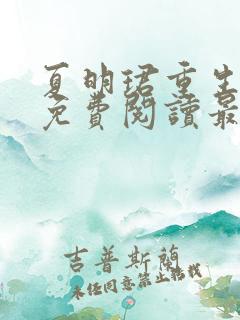 夏明珺重生
免費閱讀最
吉普斯蘭
未經同意禁止轉載